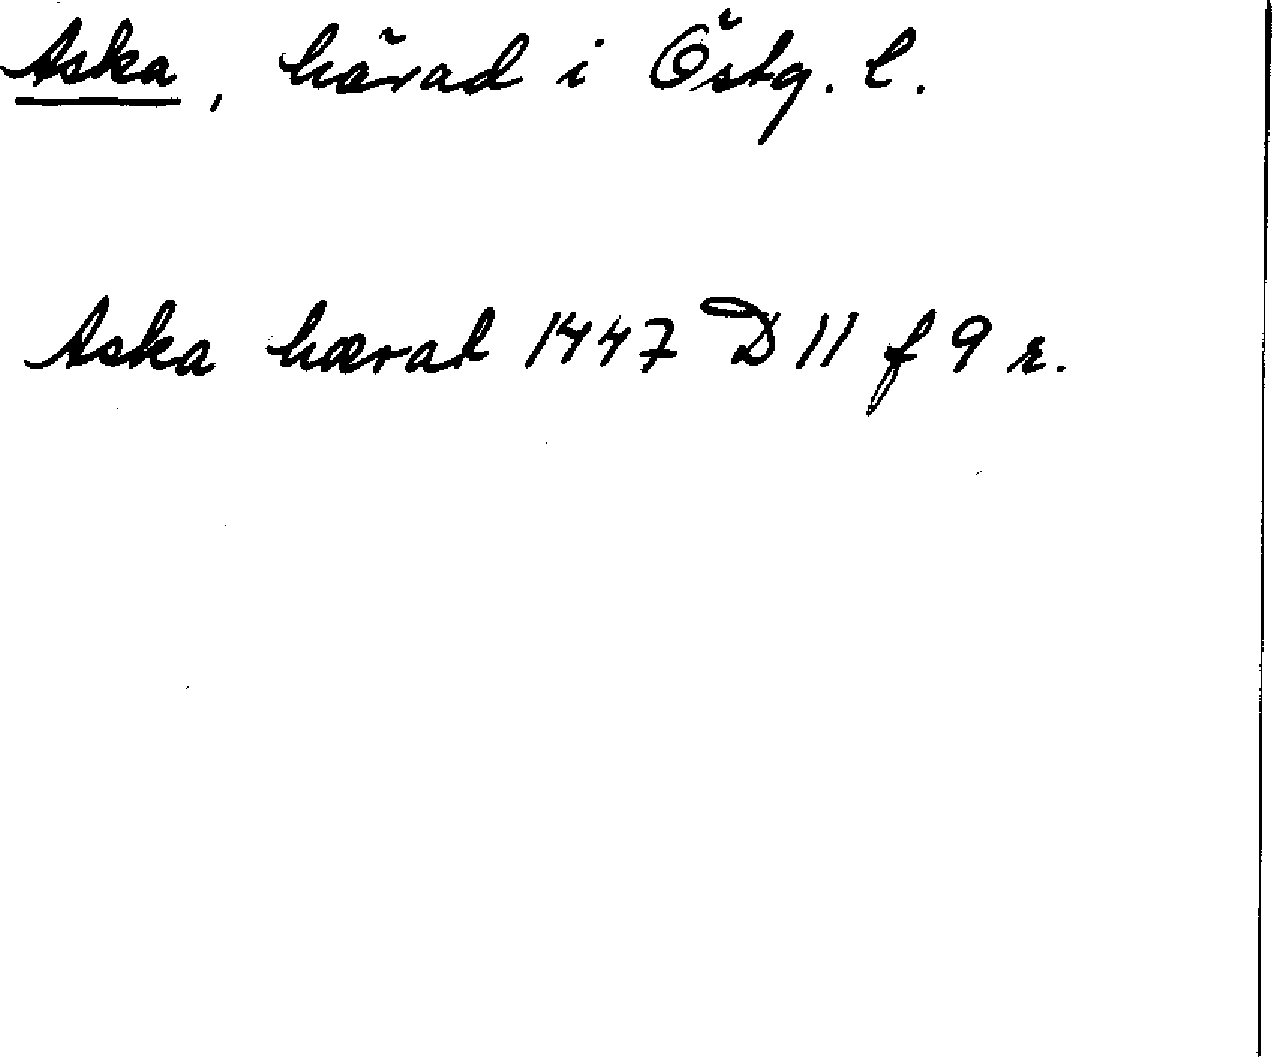 Aska, härad i Östg. l.
Aska hærat 1447 D 11 f 9 r.